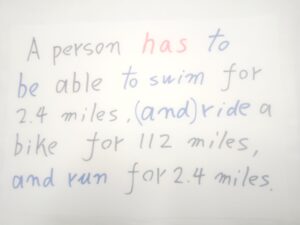 A person has to
be able to swim for
2.4 miles, (and) ride a
bike for 112 miles,
and run for 2.4 miles.